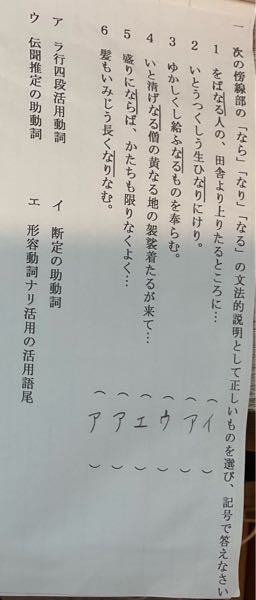 一 次の傍線部の「なら」「なり」「なる」の文法的説明として正しいものを選び、記号で答えなさい
1 をばなる人の、田舎より上りたるところに… （イ）
2 いとうつくしう生ひなりにけり。 （ア）
3 ゆかしくし給ふなるものを奉らむ。 （ウ）
4 いと清げなる僧の黄なる地の袈裟着たるが来て… （エ）
5 盛りにならば、かたちも限りなくよく… （ア）
6 髪もいみじう長くなりなむ。 （ア）
ア ラ行四段活用動詞 イ 断定の助動詞
ウ 伝聞推定の助動詞 エ 形容動詞ナリ活用の活用語尾